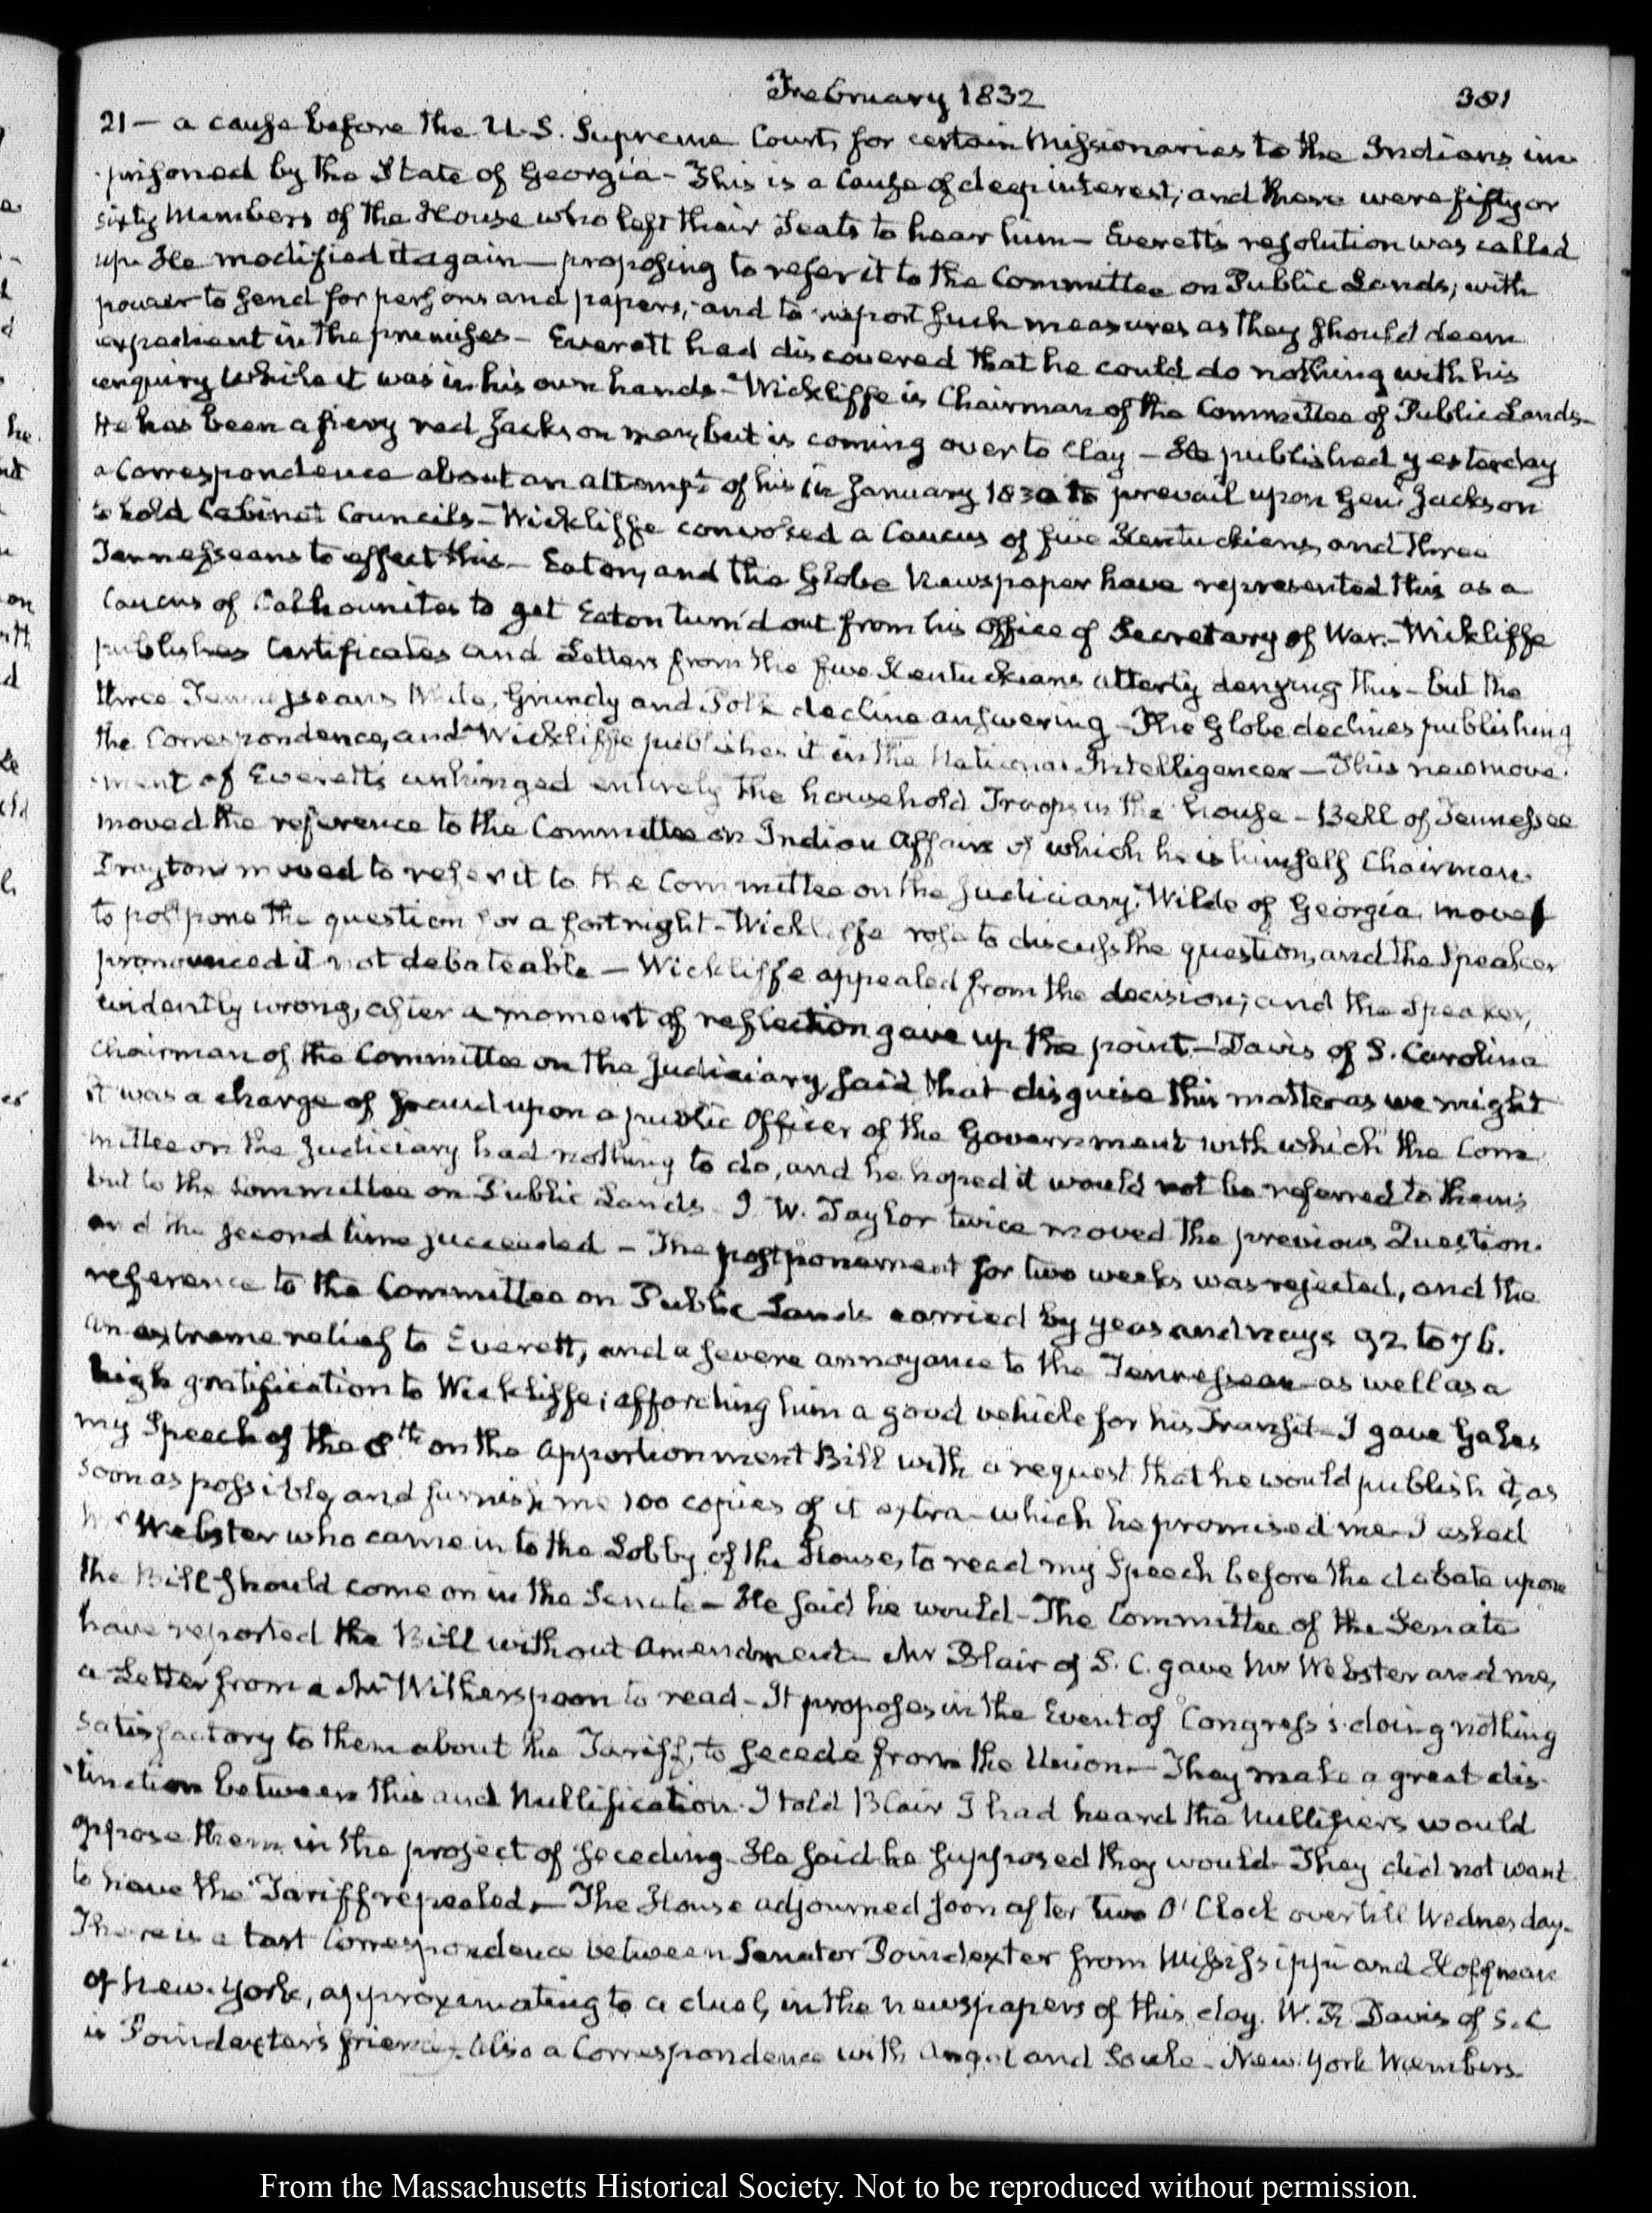 February 1832
381
21 — a cause before the U.S. Supreme Court, for certain Missionaries to the Indians im-
-prisoned by the State of Georgia — This is a Cause of deep interest; and there were fifty or
sixty Members of the House who left their Seats to hear him — Everett's resolution was called
up. He modified it again — proposing to refer it to the Committee on Public Lands; with
power to send for persons and papers; and to report such measures as they should deem
expedient in the premises — Everett had discovered that he could do nothing with his
enquiry while it was in his own hands — Wickliffe is Chairman of the Committee of Public Lands —
He has been a fiery red Jackson man, but is coming over to Clay — He published yesterday
a Correspondence about an attempt of his in January 1830 to prevail upon Genl. Jackson
to hold Cabinet Councils — Wickliffe convoked a Caucus of five Kentuckians, and three
Tennesseans to effect this — Eaton, and the Globe Newspaper have represented this as a
Caucus of Calhounites to get Eaton turn'd out from his Office of Secretary of War. — Wickliffe
publishes Certificates and Letters from the five Kentuckians utterly denying this — but the
three Tennesseans White, Grundy and Polk decline answering — The Globe declines publishing
the Correspondence, and Wickliffe publishes it in the National Intelligencer — This new move-
-ment of Everett's unhinged entirely the household Troops in the House — Bell of Tennessee
moved the reference to the Committee on Indian Affairs of which he is himself Chairman.
Drayton moved to refer it to the Committee on the Judiciary. Wilde of Georgia moved
to postpone the question for a fortnight — Wickliffe rose to discuss the question, and the Speaker
pronounced it not debateable — Wickliffe appealed from the decision; and the Speaker,
evidently wrong, after a moment of reflection gave up the point — Davis of S. Carolina
Chairman of the Committee on the Judiciary, said that disguise this matter as we might
it was a charge of fraud upon a public Officer of the Government with which the Com-
mittee on the Judiciary had nothing to do, and he hoped it would not be referred to them;
but to the Committee on Public Lands — J. W. Taylor twice moved the previous Question.
and the second time succeeded — The postponement for two weeks was rejected, and the
reference to the Committee on Public Lands carried by yeas and nays 92 to 76.
an extreme relief to Everett, and a severe annoyance to the Tennessean as well as a
high gratification to Wickliffe; affording him a good vehicle for his Transit — I gave Gales
my Speech of the 8th on the Apportionment Bill with a request that he would publish it, as
soon as possible, and furnish me 100 copies of it extra — which he promised me — I asked
Mr Webster who came in to the Lobby of the House, to read my Speech before the debate upon
the Bill should come on in the Senate — He said he would — The Committee of the Senate
have reported the Bill without Amendment — Mr Blair of S. C. gave Mr Webster and me,
a Letter from a Mr Witherspoon to read — It proposes in the Event of Congress's doing nothing
satisfactory to them about the Tariff, to secede from the Union — They make a great dis-
-tinction between this and Nullification. I told Blair I had heard the Nullifiers would
oppose them in the project of seceding — He said he supposed they would — They did not want
to have the Tariff repealed, — The House adjourned soon after two O'Clock over till Wednesday.
There is a tart Correspondence between Senator Poindexter from Mississippi and Hoffman
of New-York, approximating to a duel, in the newspapers of this day. W. R. Davis of S. C
is Poindexter's friend — Also a Correspondence with Angel and Soule — New-York Members.
From the Massachusetts Historical Society. Not to be reproduced without permission.